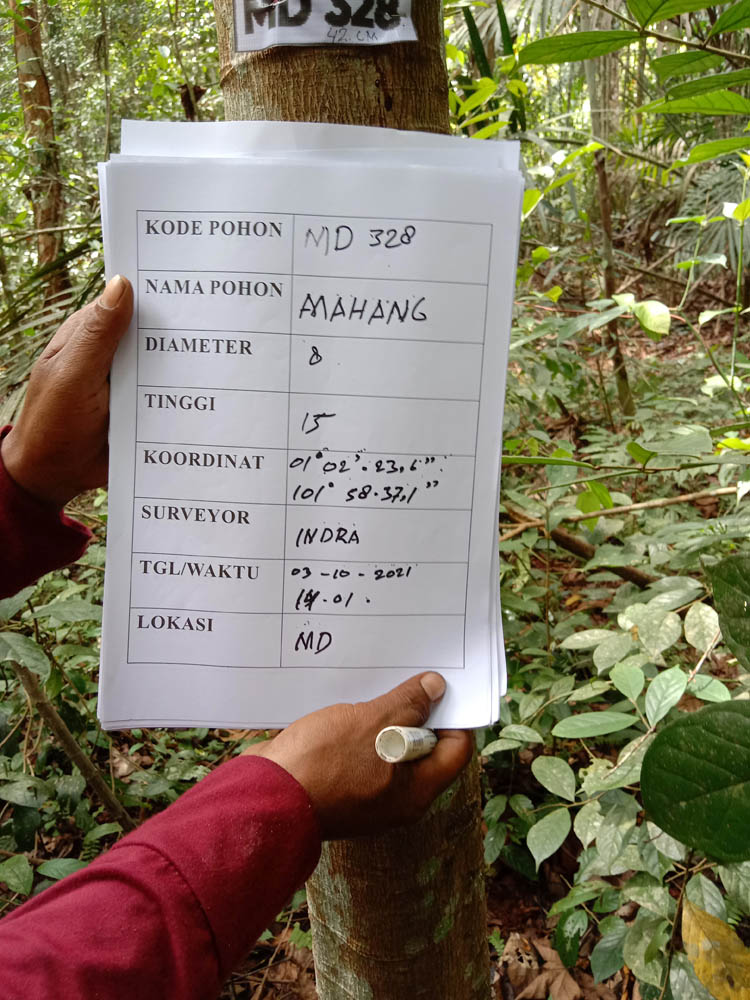 MD 328
42 CM
KODE POHON MD 328
NAMA POHON MAHANG
DIAMETER 8
TINGGI 15
KOORDINAT 01° 02'. 23,6"
101° 58. 37,1"
SURVEYOR INDRA
TGL/WAKTU 03-10-2021
14.01.
LOKASI MD